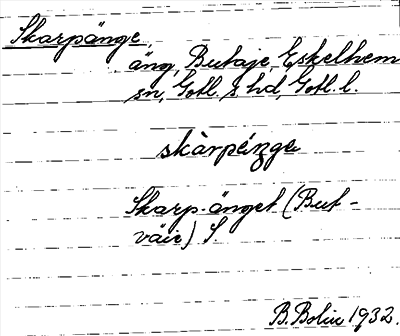 Skarpänge
äng, Butaje, Eskelhem
sn, Gotl. s. hd, Gotl. l.
skàrpéngε
Skarp-änget (But-
väie) S.
B. Bolin 1932.